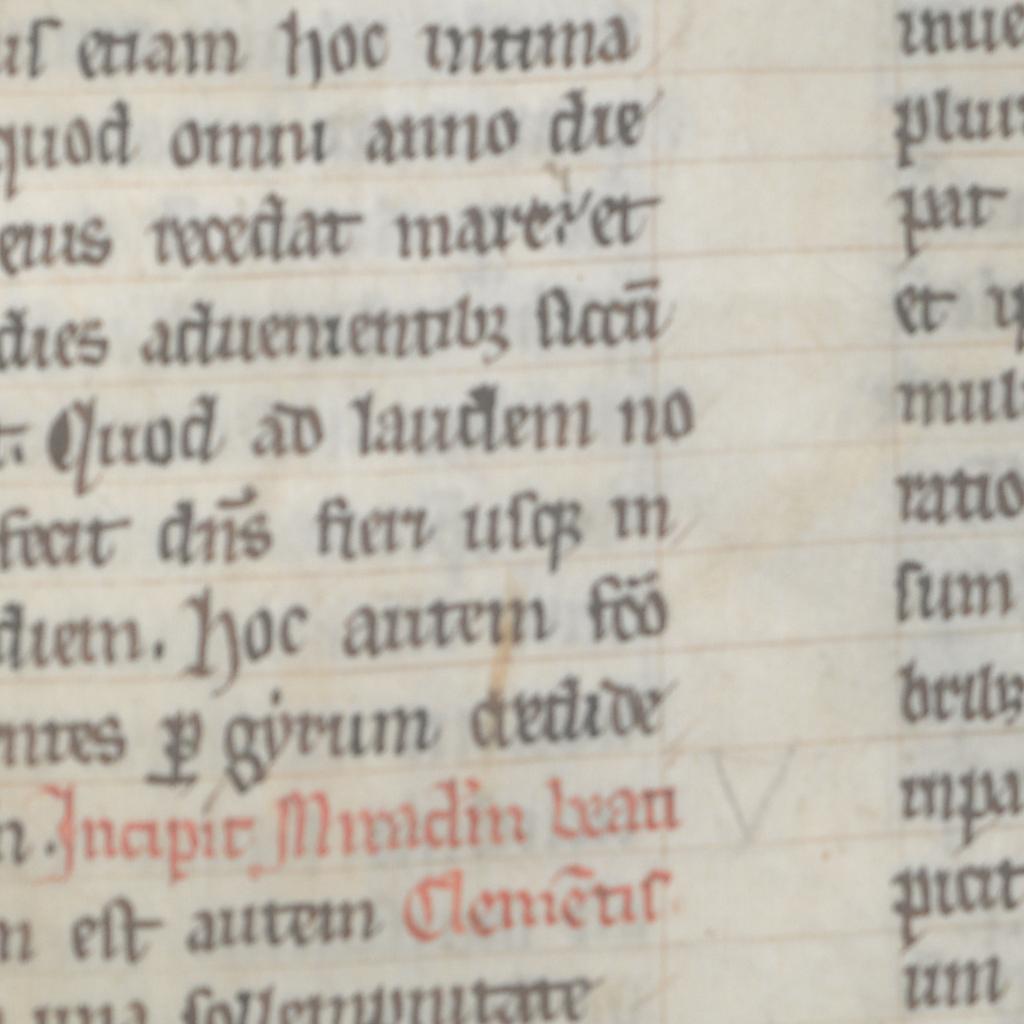 etiam hoc intima
quod omni anno die
eius recedat mare. et
dies aduenientibꝫ siccū
Quod ad laudem no
fecit dn̄s fieri usqꝫ in
diem. hoc autem
ꝑ gyrum dedide
Incipit Miraclm beati
est autem Clemētis
una sollempnitate
inue
plur
pat
et
mul
ratio
sum
bꝛilꝫ
inpa
piat
um